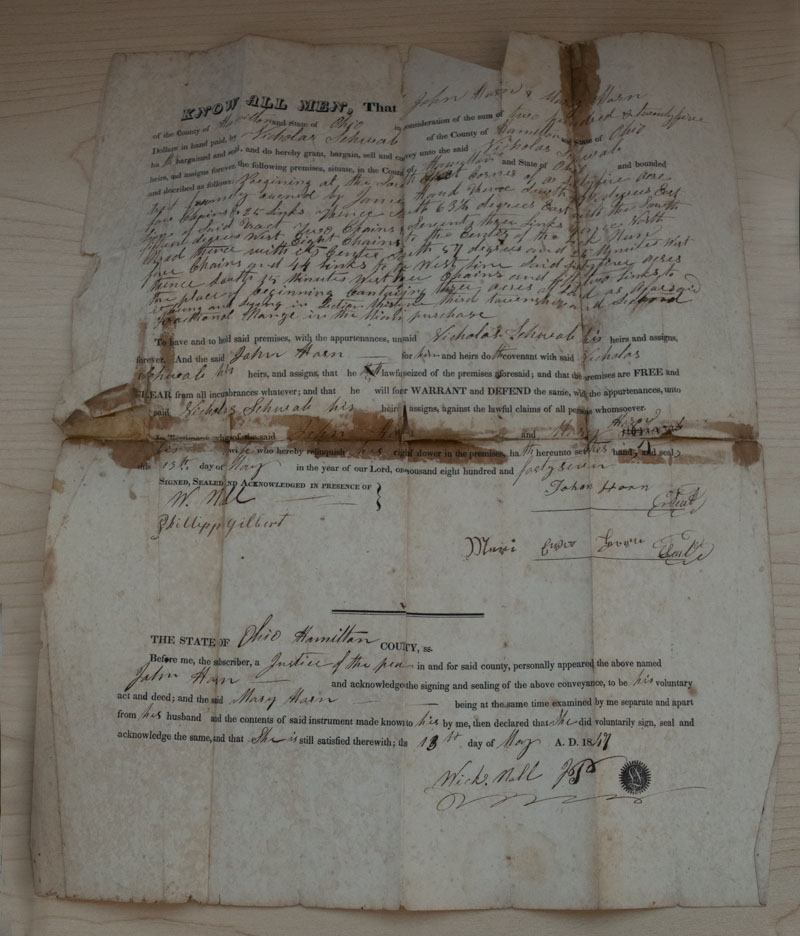 KNOW ALL MEN, That John Horn & Mary Horn
of the County of Hamilton and State of Ohio in consideration of the sum of two hundred & twentyfive
Dollars in hand paid by Nicholas Schwab of the County of Hamilton and State of Ohio
ha th bargained and sold, and do hereby grant, bargain, sell and convey unto the said Nicholas Schwab
heirs, and assigns forever, the following premises, situate, in the County of Hamilton and State of Ohio and bounded
and described as follows Begining at the corner of a fire acre
lott formerly owened by James Road thence South degrees East
four Chains & 25 links thence South 63½ degrees East with the South
line of Said tract Two Chains & seventy three links thence North
fifteen degrees West Eight Chains to the Center of the
Road thence with its Center South 57 degrees and Minutes West
five Chains and 44 links to a West line Said acres
thence South 15 Minutes West Chains and two links to
the place of beginning Containing three acres of land as aforesaid
Lying and dying in Section thirty third township and Second
Fractional Range in the Miami purchase
To have and to hold said premises, with the appurtenances, unto said Nicholas Schwab his heirs and assigns,
forever. And the said John Horn for him and heirs do th covenant with said Nicholas
Schwab his heirs, and assigns, that he is lawfully seized of the premises aforesaid; and that the premises are FREE and
CLEAR from all incumbrances whatever; and that he will forever WARRANT and DEFEND the same, with the appurtenances, unto
said Nicholas Schwab his heirs assigns, against the lawful claims of all persons whomsoever.
In Testimony whereof the said John and Mary
wife who hereby relinquish his right of dower in the premises, ha th hereunto set their hand and seal
this 13th day of May in the year of our Lord, one thousand eight hundred and forty seven
SIGNED, SEALED AND ACKNOWLEDGED IN PRESENCE OF
W. Nall
John Horn
Phillipp Gilbert
Mari
THE STATE OF Ohio Hamilton COUNTY, ss.
Before me, the subscriber, a Justice of the peace in and for said county, personally appeared the above named
John Horn and acknowledge the signing and sealing of the above conveyance, to be his voluntary
act and deed; and the said Mary Horn being at the same time examined by me separate and apart
from his husband and the contents of said instrument made known to his by me, then declared that She did voluntarily sign, seal and
acknowledge the same, and that She is still satisfied therewith; this 13th day of May A. D. 1847
Wick. Nall